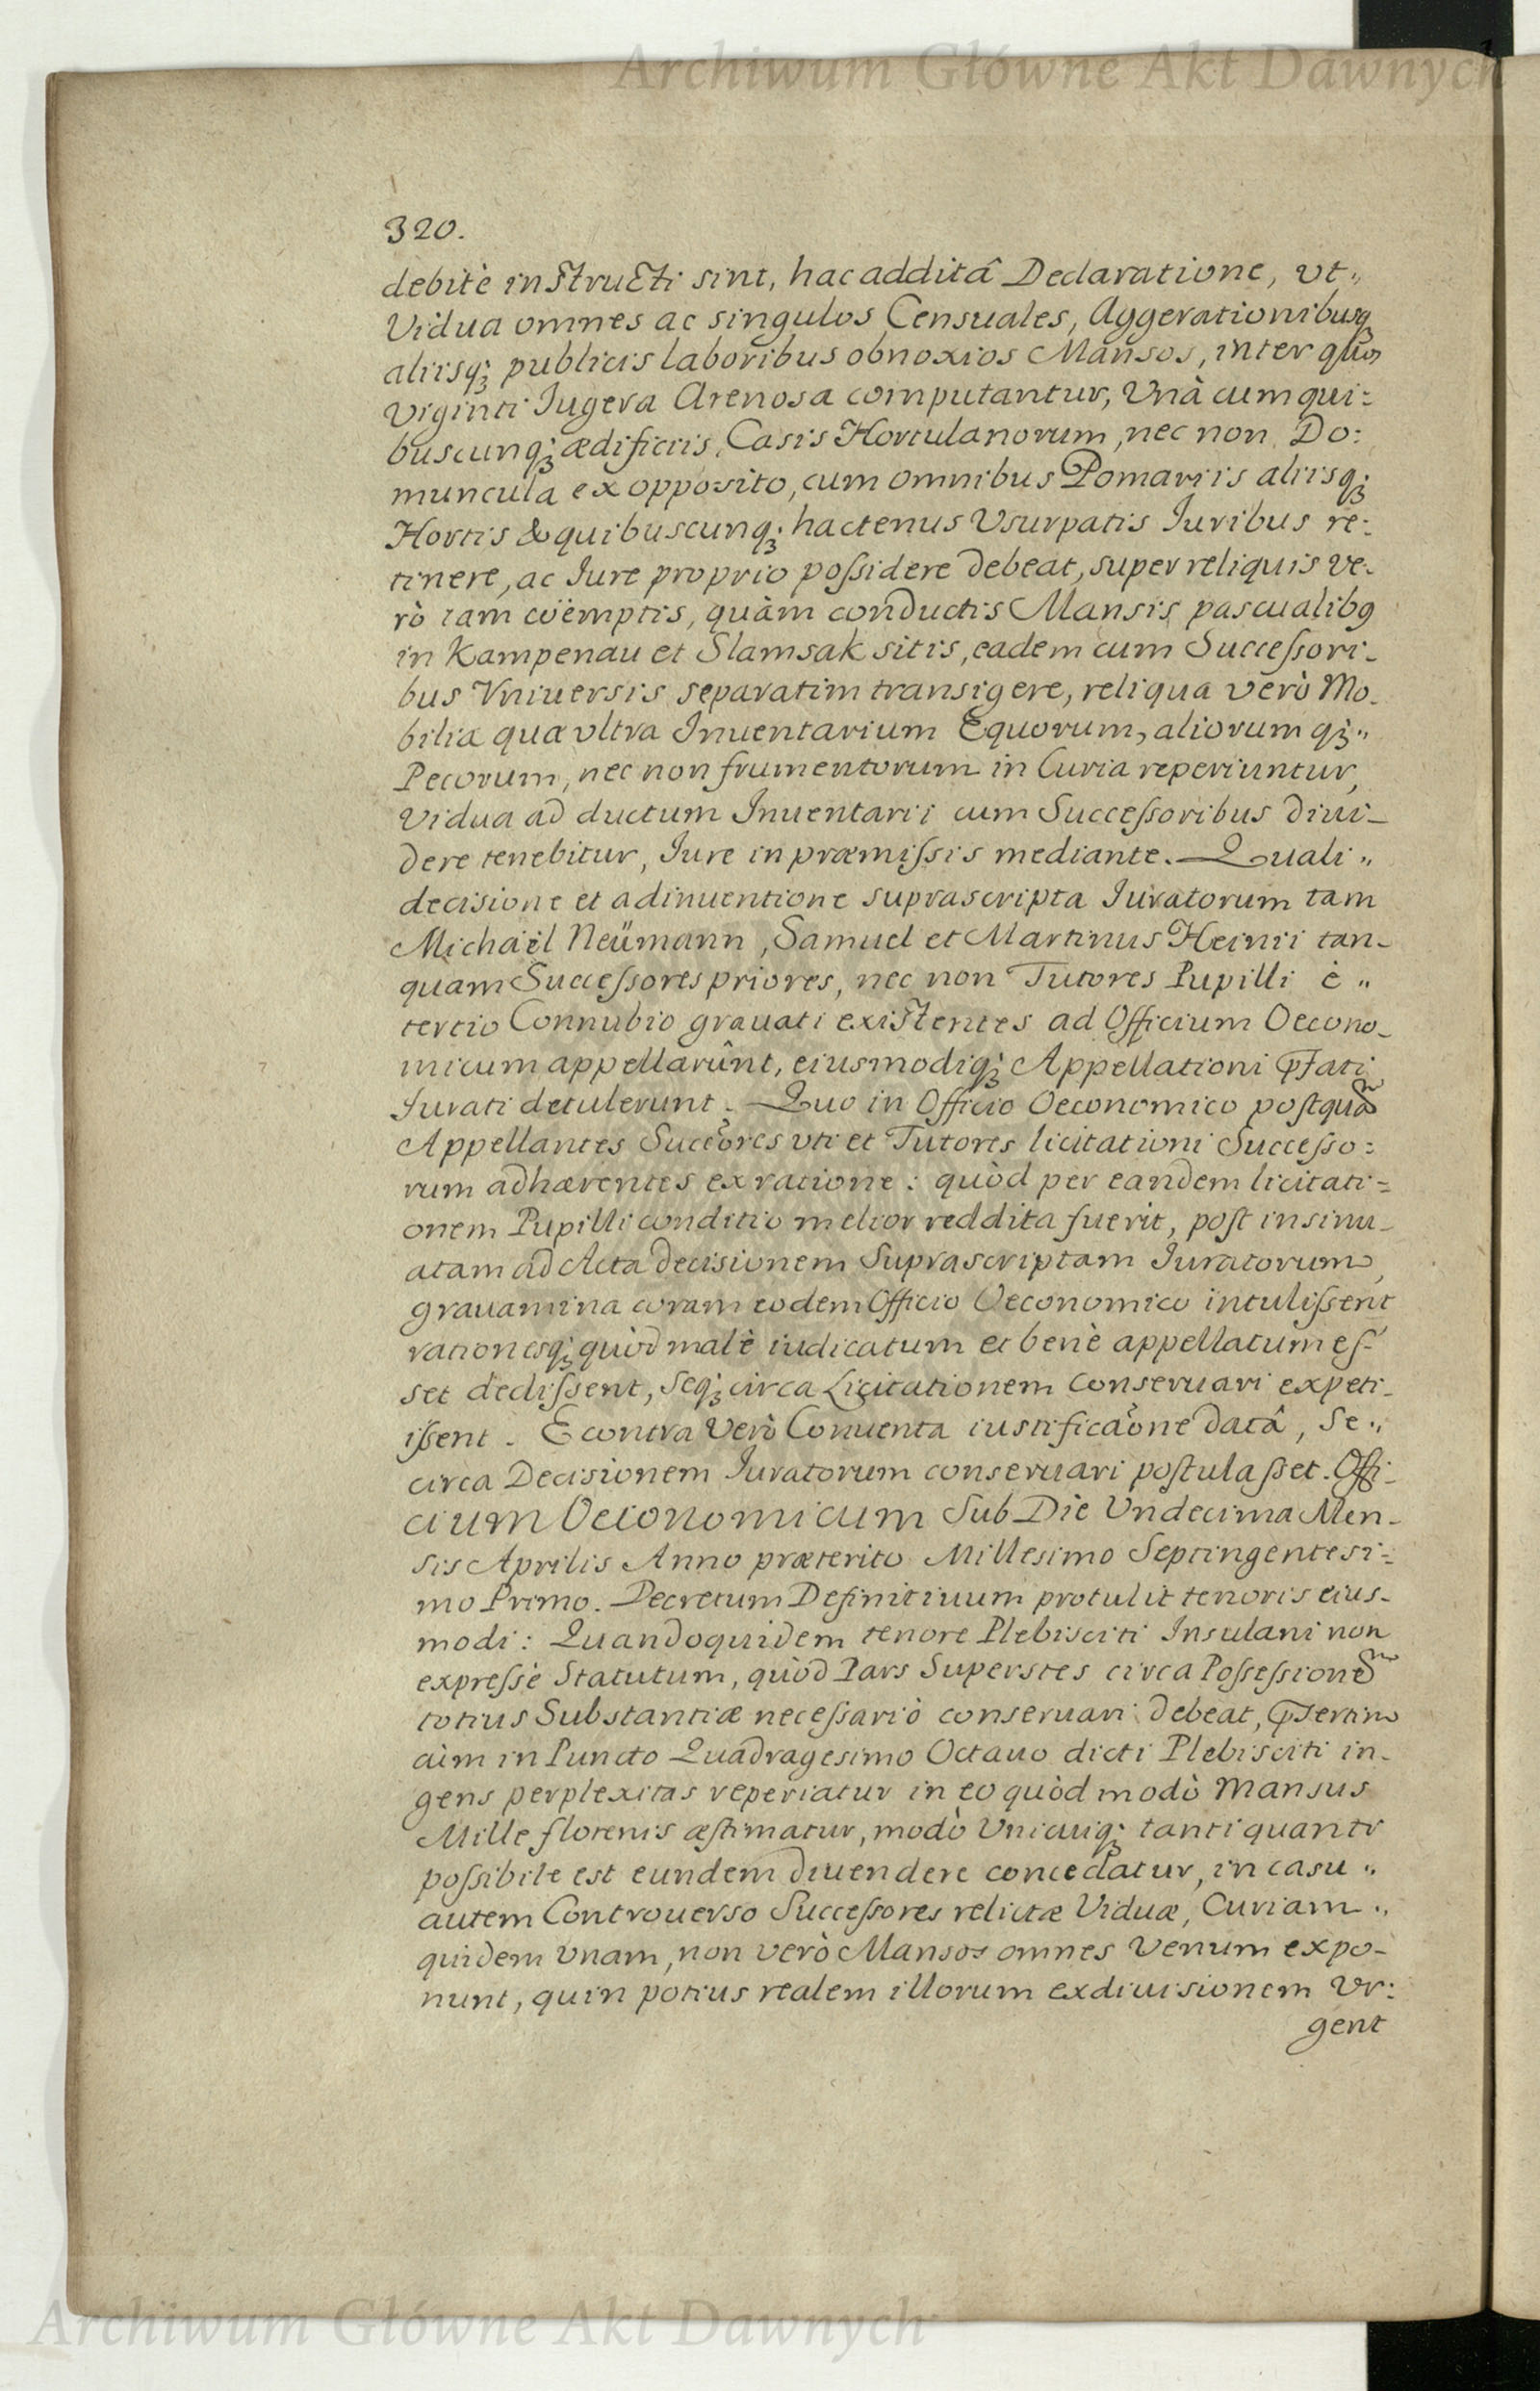 Archiwum Główne Akt Dawnych
320.
debitè instructi sint, hac additâ Declaratione, vt„
Vidua omnes ac singulos Censuales, Aggerationibusq;
aliisq; publicis laboribus obnoxios Mansos, inter quos
viginti Iugera Arenosa computantur, Vnà cum qui:
buscunq; ædificiis, Casis Hortulanorum, nec non Do:
muncula ex opposito, cum omnibus Pomariis aliisq;
Hortis & quibuscunq; hactenus Vsurpatis Iuribus re:
tinere, ac Iure proprio possidere debeat, super reliquis ve-
rò tam coëmptis, quàm conductis Mansis pascualibꝰ
in Kampenau et Slamsak sitis, eadem cum Successori-
bus Vniuersis separatim transigere, reliqua verò Mo-
bilia quæ vltra Inuentarium Equorum, aliorumq;„
Pecorum, nec non frumentorum in Curia reperiuntur,
Vidua ad ductum Inuentarii cum Successoribus diui-
dere tenebitur, Iure in præmissis mediante. Quali„
decisione et adinuentione suprascripta Iuratorum tam
Michaël Neümann, Samuel et Martinus Heinii tan-
quam Successores priores, nec non Tutores Pupilli è„
tertio Connubio grauati existentes ad Officium Oecono-
micum appellarûnt, eiusmodiq; Appellationi p̄fati
Iurati detulerunt. Quo in Officio Oeconomico postquã
Appellantes Succ̃ores vti et Tutores licitationi Successo:
rum adhærentes ex ratione: quòd per eandem licitati=
onem Pupilli conditio melior reddita fuerit, post insinu-
atam ad Acta decisionem Suprascriptam Iuratorum,
grauamina coram eodem Officio Oeconomico intulissent
rationesq; quòd malè iudicatum et benè appellatum es-
set dedissent, seq; circa Licitationem conseruari expeti-
issent. E contra verò Conuenta iustificãone datâ, Se„
circa Decisionem Iuratorum conseruari postulasset. Offi-
cium Oeconomicum Sub Die Undecima Men-
sis Aprilis Anno præterito Millesimo Septingentesi=
mo Primo. Decretum Definitiuum protulit tenoris eius-
modi: Quandoquidem tenore Plebisciti Insulani non
expressè Statutum, quòd Pars Superstes circa Possessionẽ
totius Substantiæ necessariò conseruari debeat, p̄sertim
cùm in Puncto Quadragesimo Octauo dicti Plebisciti in-
gens perplexitas reperiatur in eo quòd modò Mansus
Mille florenis æstimatur, modò Unicuiq; tanti quanti
possibile est eundem diuendere concedatur, in casu„
autem Controuerso Successores relictæ Viduæ, Curiam„
quidem Vnam, non verò Mansos omnes Venum expo-
nunt, quin potius realem illorum exdiuisionem Vr:
gent
Archiwum Główne Akt Dawnych